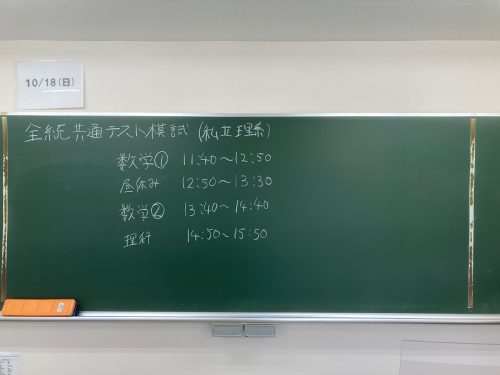 10/18(日)
全統共通テスト模試(私立理系)
数学① 11:40~12:50
昼休み 12:50~13:30
数学② 13:40~14:40
理科 14:50~15:50